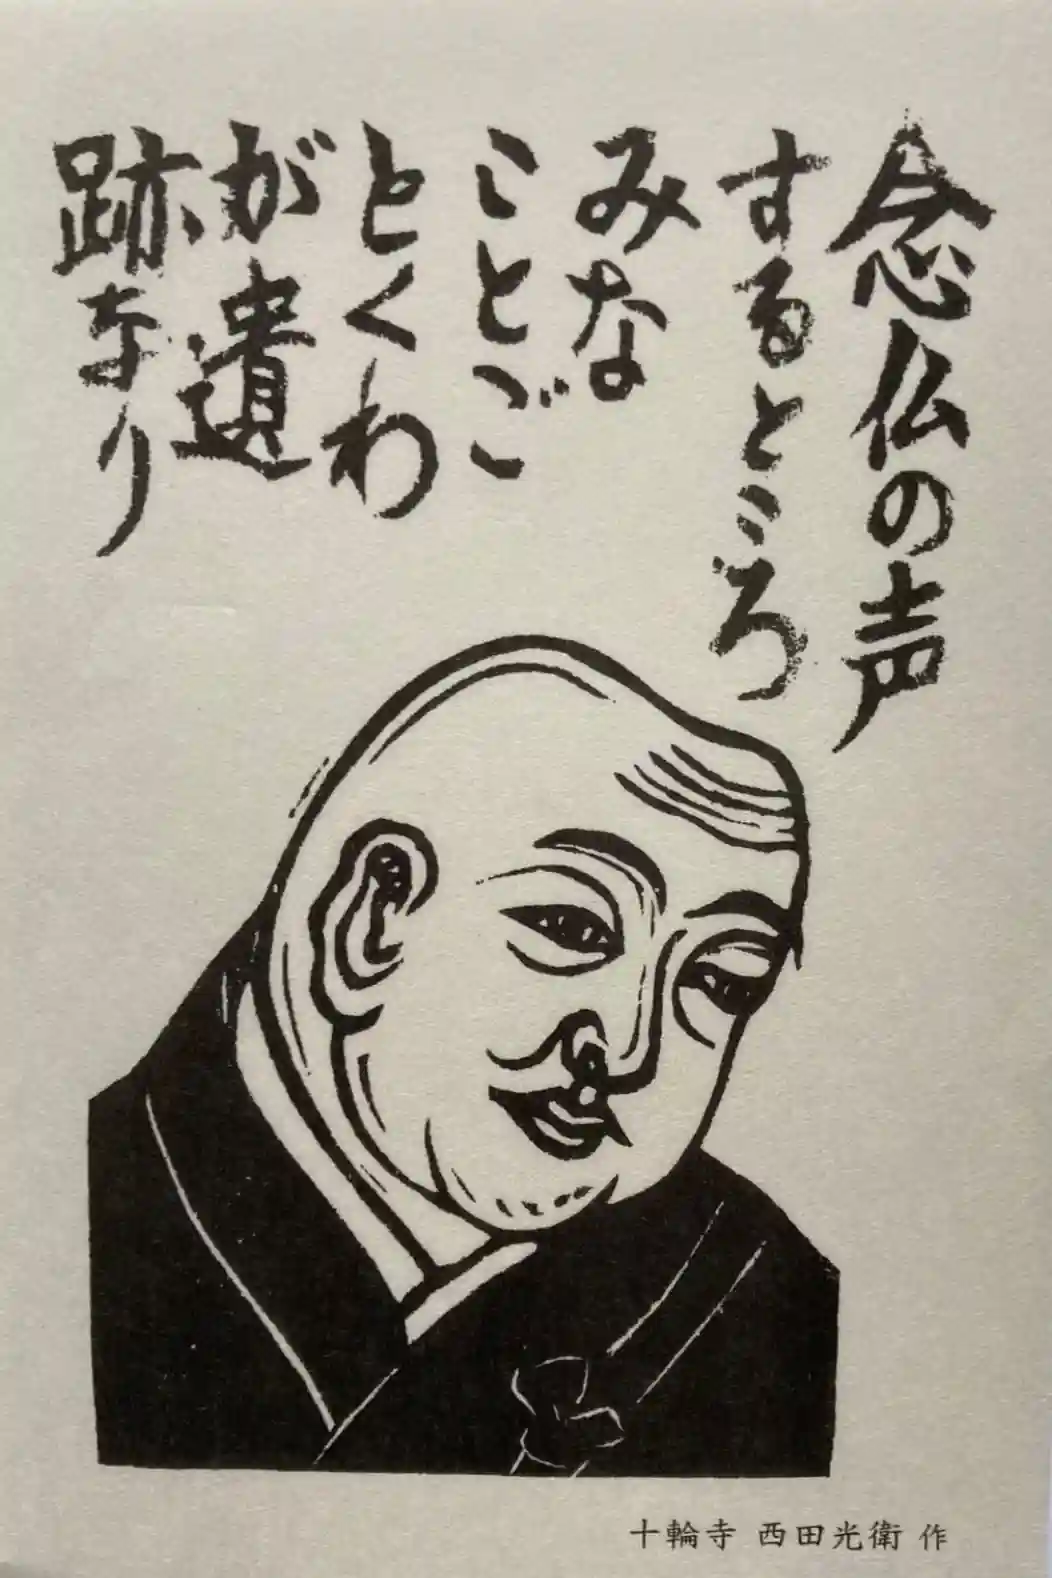 念仏の声
するところ
みな
ことご
とくわ
が遺
跡なり
十輪寺 西田光衛 作